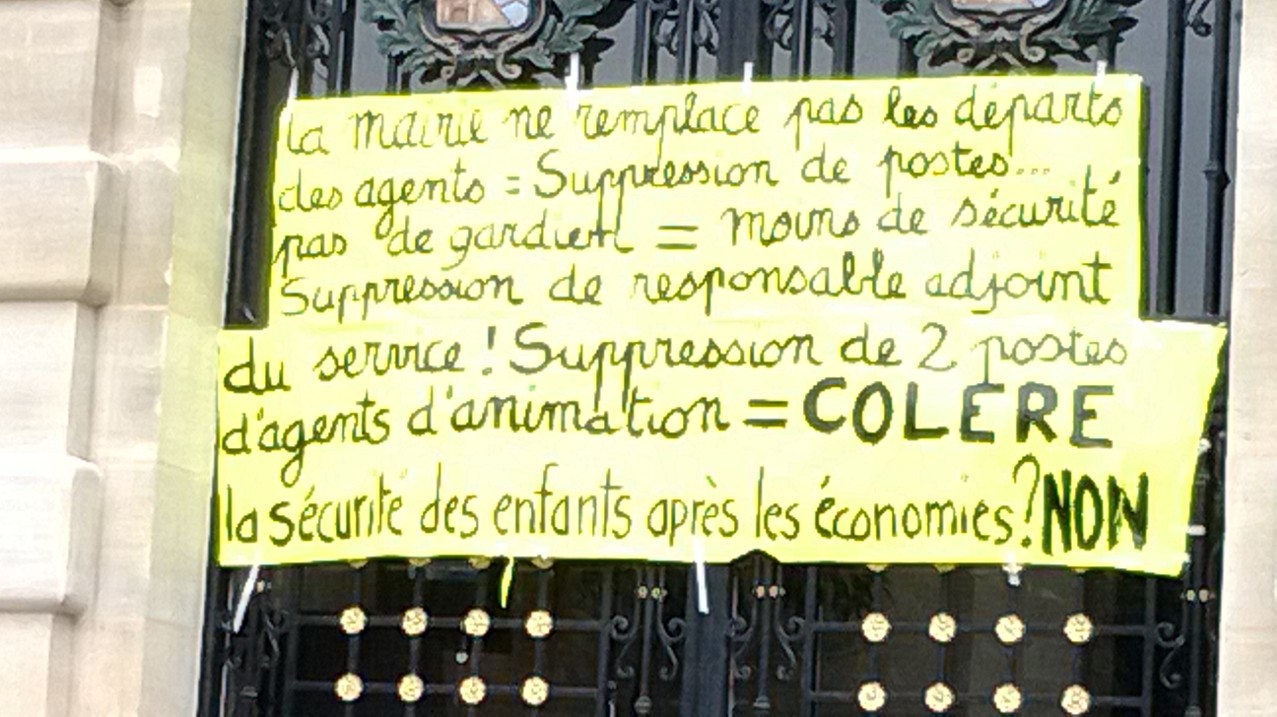 la mairie ne remplace pas les départs
des agents = Suppression de postes...
pas de gardien = moins de sécurité
Suppression de responsable adjoint
du service ! Suppression de 2 postes
d'agents d'animation = COLERE
la sécurité des enfants après les économies ? NON